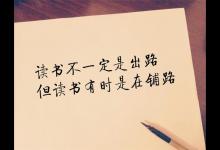 读书不一定是出路
但读书有时是在铺路